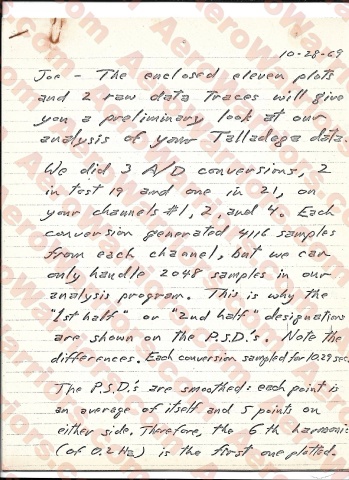 10-28-69
Joe - The enclosed eleven plots
and 2 raw data traces will give
you a preliminary look at our
analysis of your Talladega data.
We did 3 A/D conversions, 2
in test 19 and one in 21, on
your channels #1, 2, and 4. Each
conversion generated 4116 samples
from each channel, but we can
only handle 2048 samples in our
analysis program. This is why the
"1st half" or "2nd half" designations
are shown on the P.S.D.'s. Note the
differences. Each conversion sampled for 10.29 sec.
The P.S.D.'s are smoothed: each point is
an average of itself and 5 points on
either side. Therefore, the 6th harmonic
(of 0.2 Hz) is the first one plotted.